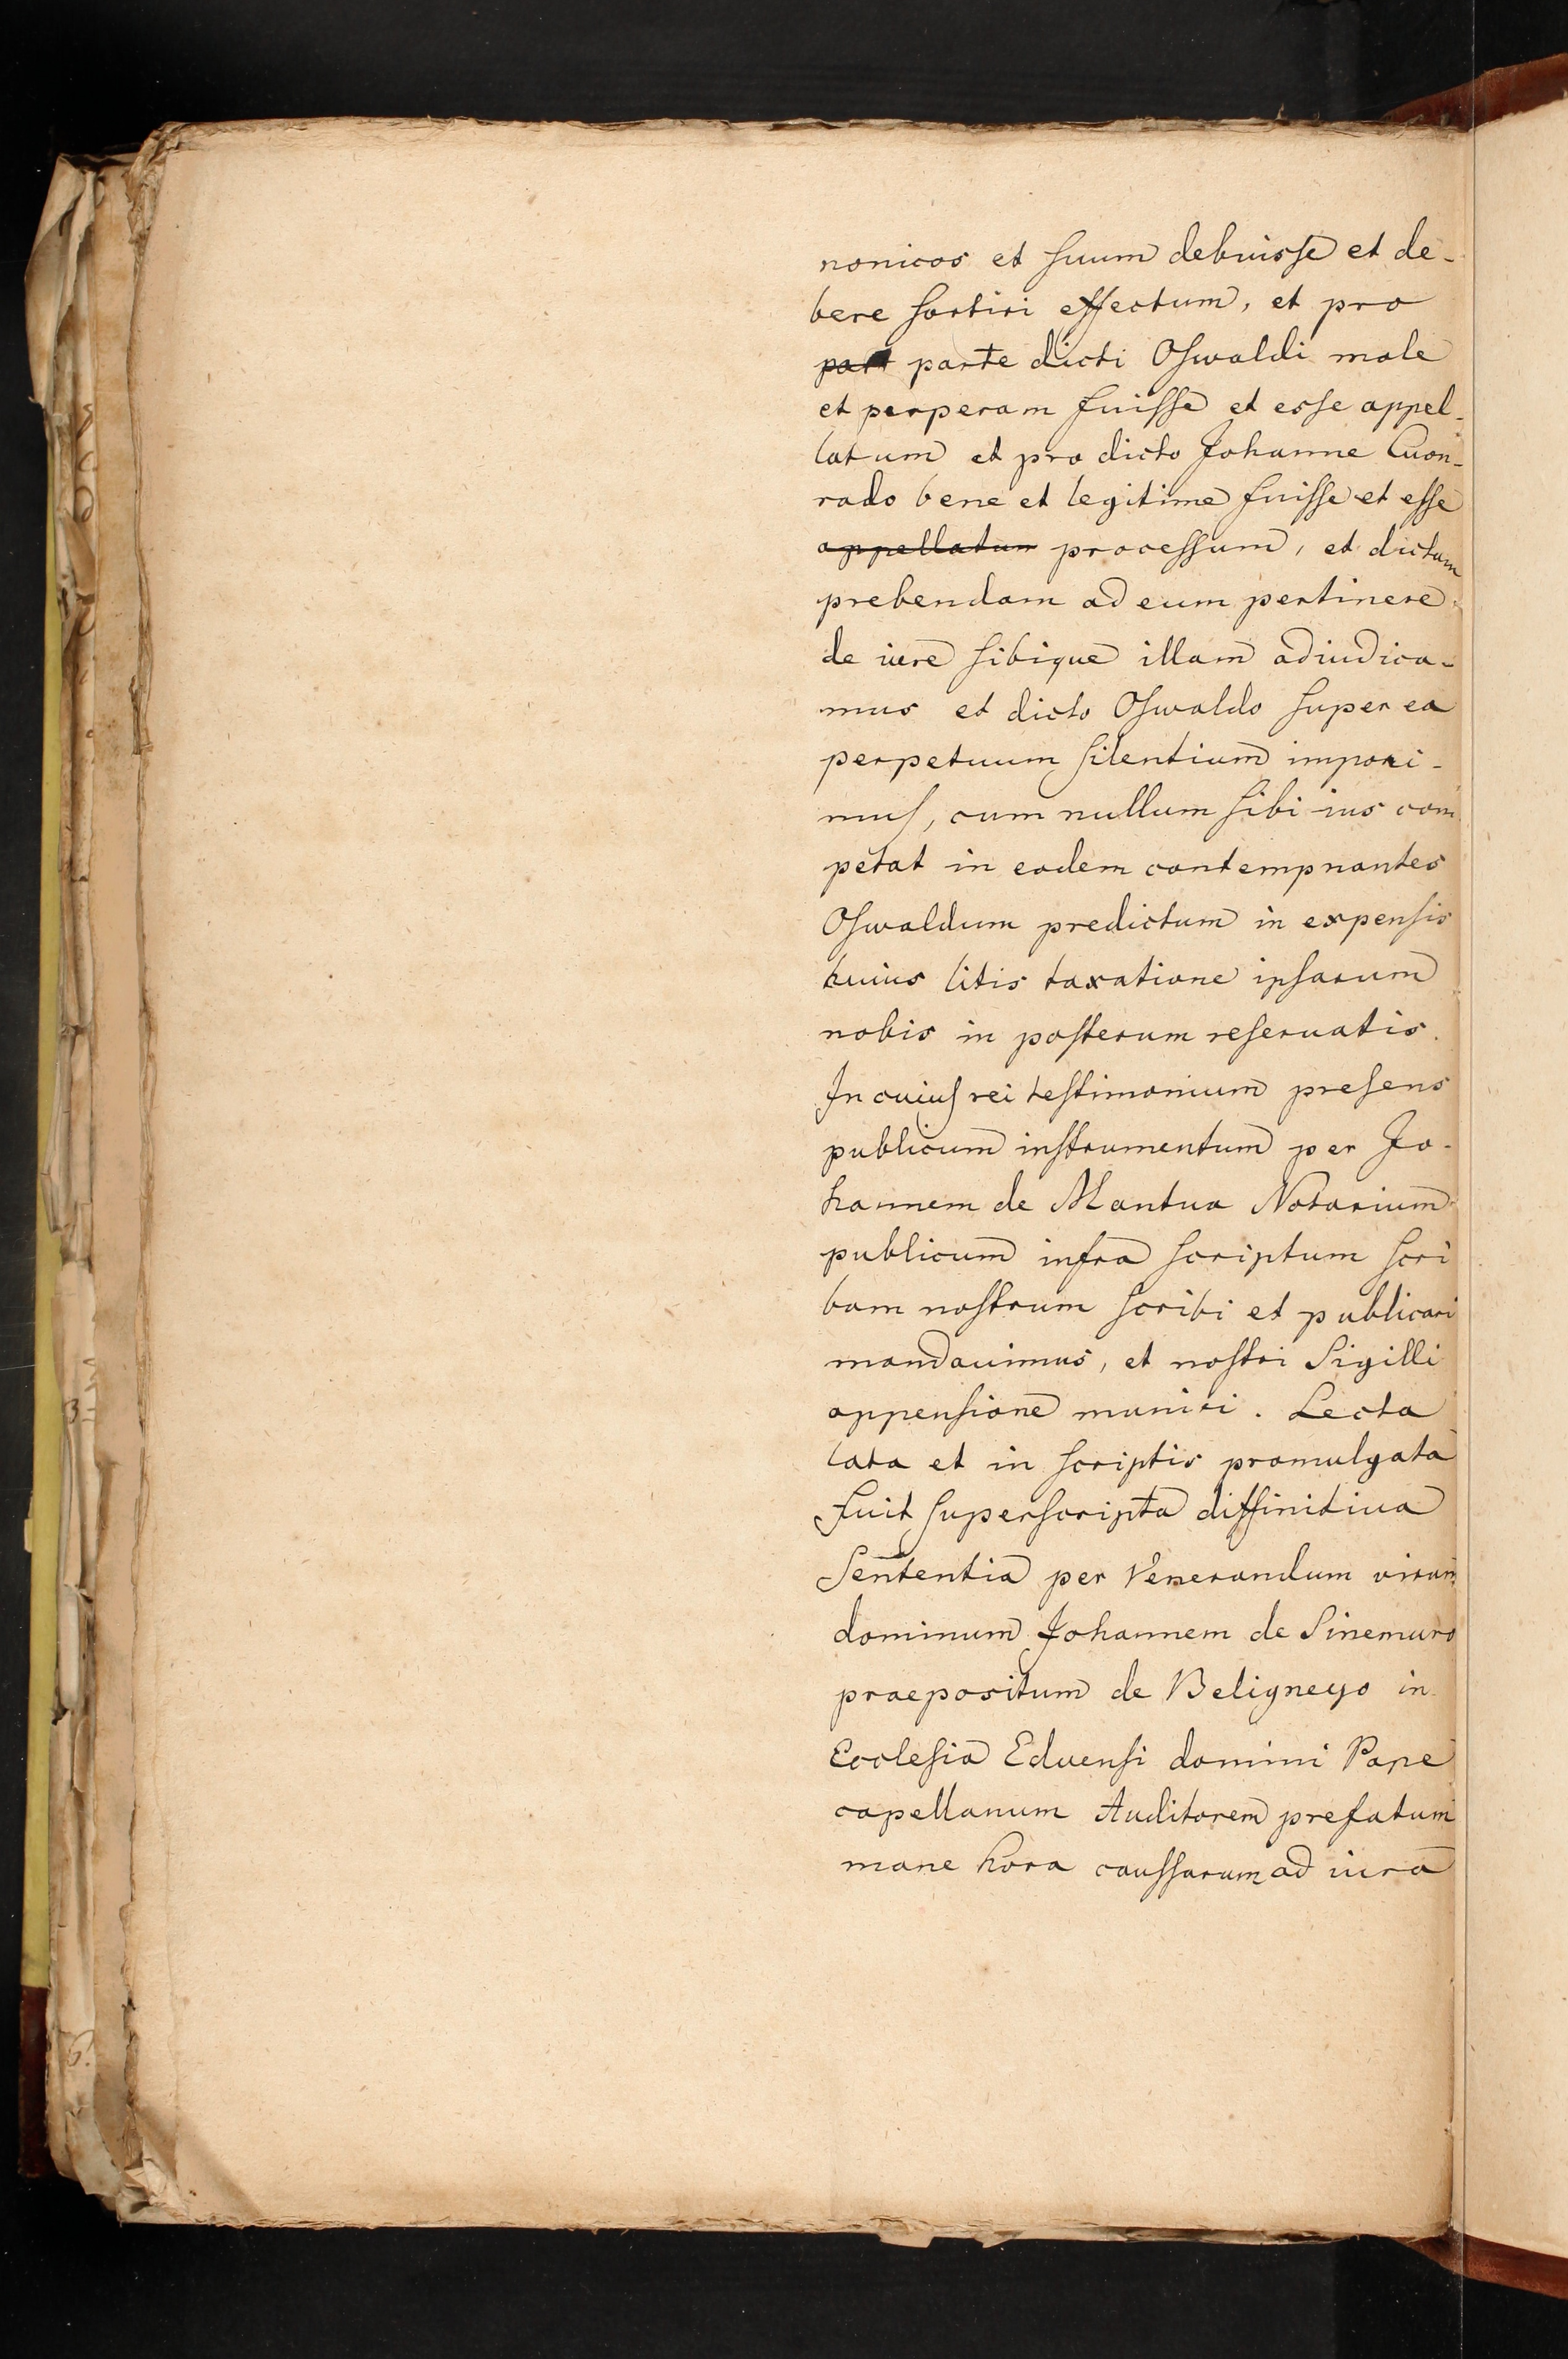 nonicos et suum debuisse et de-
bere sortiri effectum, et pro
part parte dicti Oswaldi male
et perperam fuisse et esse appel-
latum et pro dicto Johanne Cuon-
rado bene et legitime fuisse et esse
appellatum processum, et dictam
prebendam ad eum pertinere
de iure sibique illam adiudica-
mus et dicto Oswaldo super ea
perpetuum silentium imponi-
mus, cum nullum sibi ius com
petat in eadem contempnantes
Oswaldum predictum in expensis
huius litis taxatione ipsarum
nobis in posterum reservatis.
In cuius rei testimonium presens
publicum instrumentum per Jo-
hannem de Mantua Notarium
publicum infra scriptum scri
bam nostrum scribi et publicari
mandauimus, et nostri Sigilli
appensione muniri. Lecta
lata et in scriptis promulgata
fuit superscripta diffinitiua
Sententia per Venerandum virum
dominum Johannem de Sinemuro
praepositum de Beligneyo in
Ecclesia Eduensi domini Pape
capellanum Auditorem prefatum
mane hora caussarum ad iura